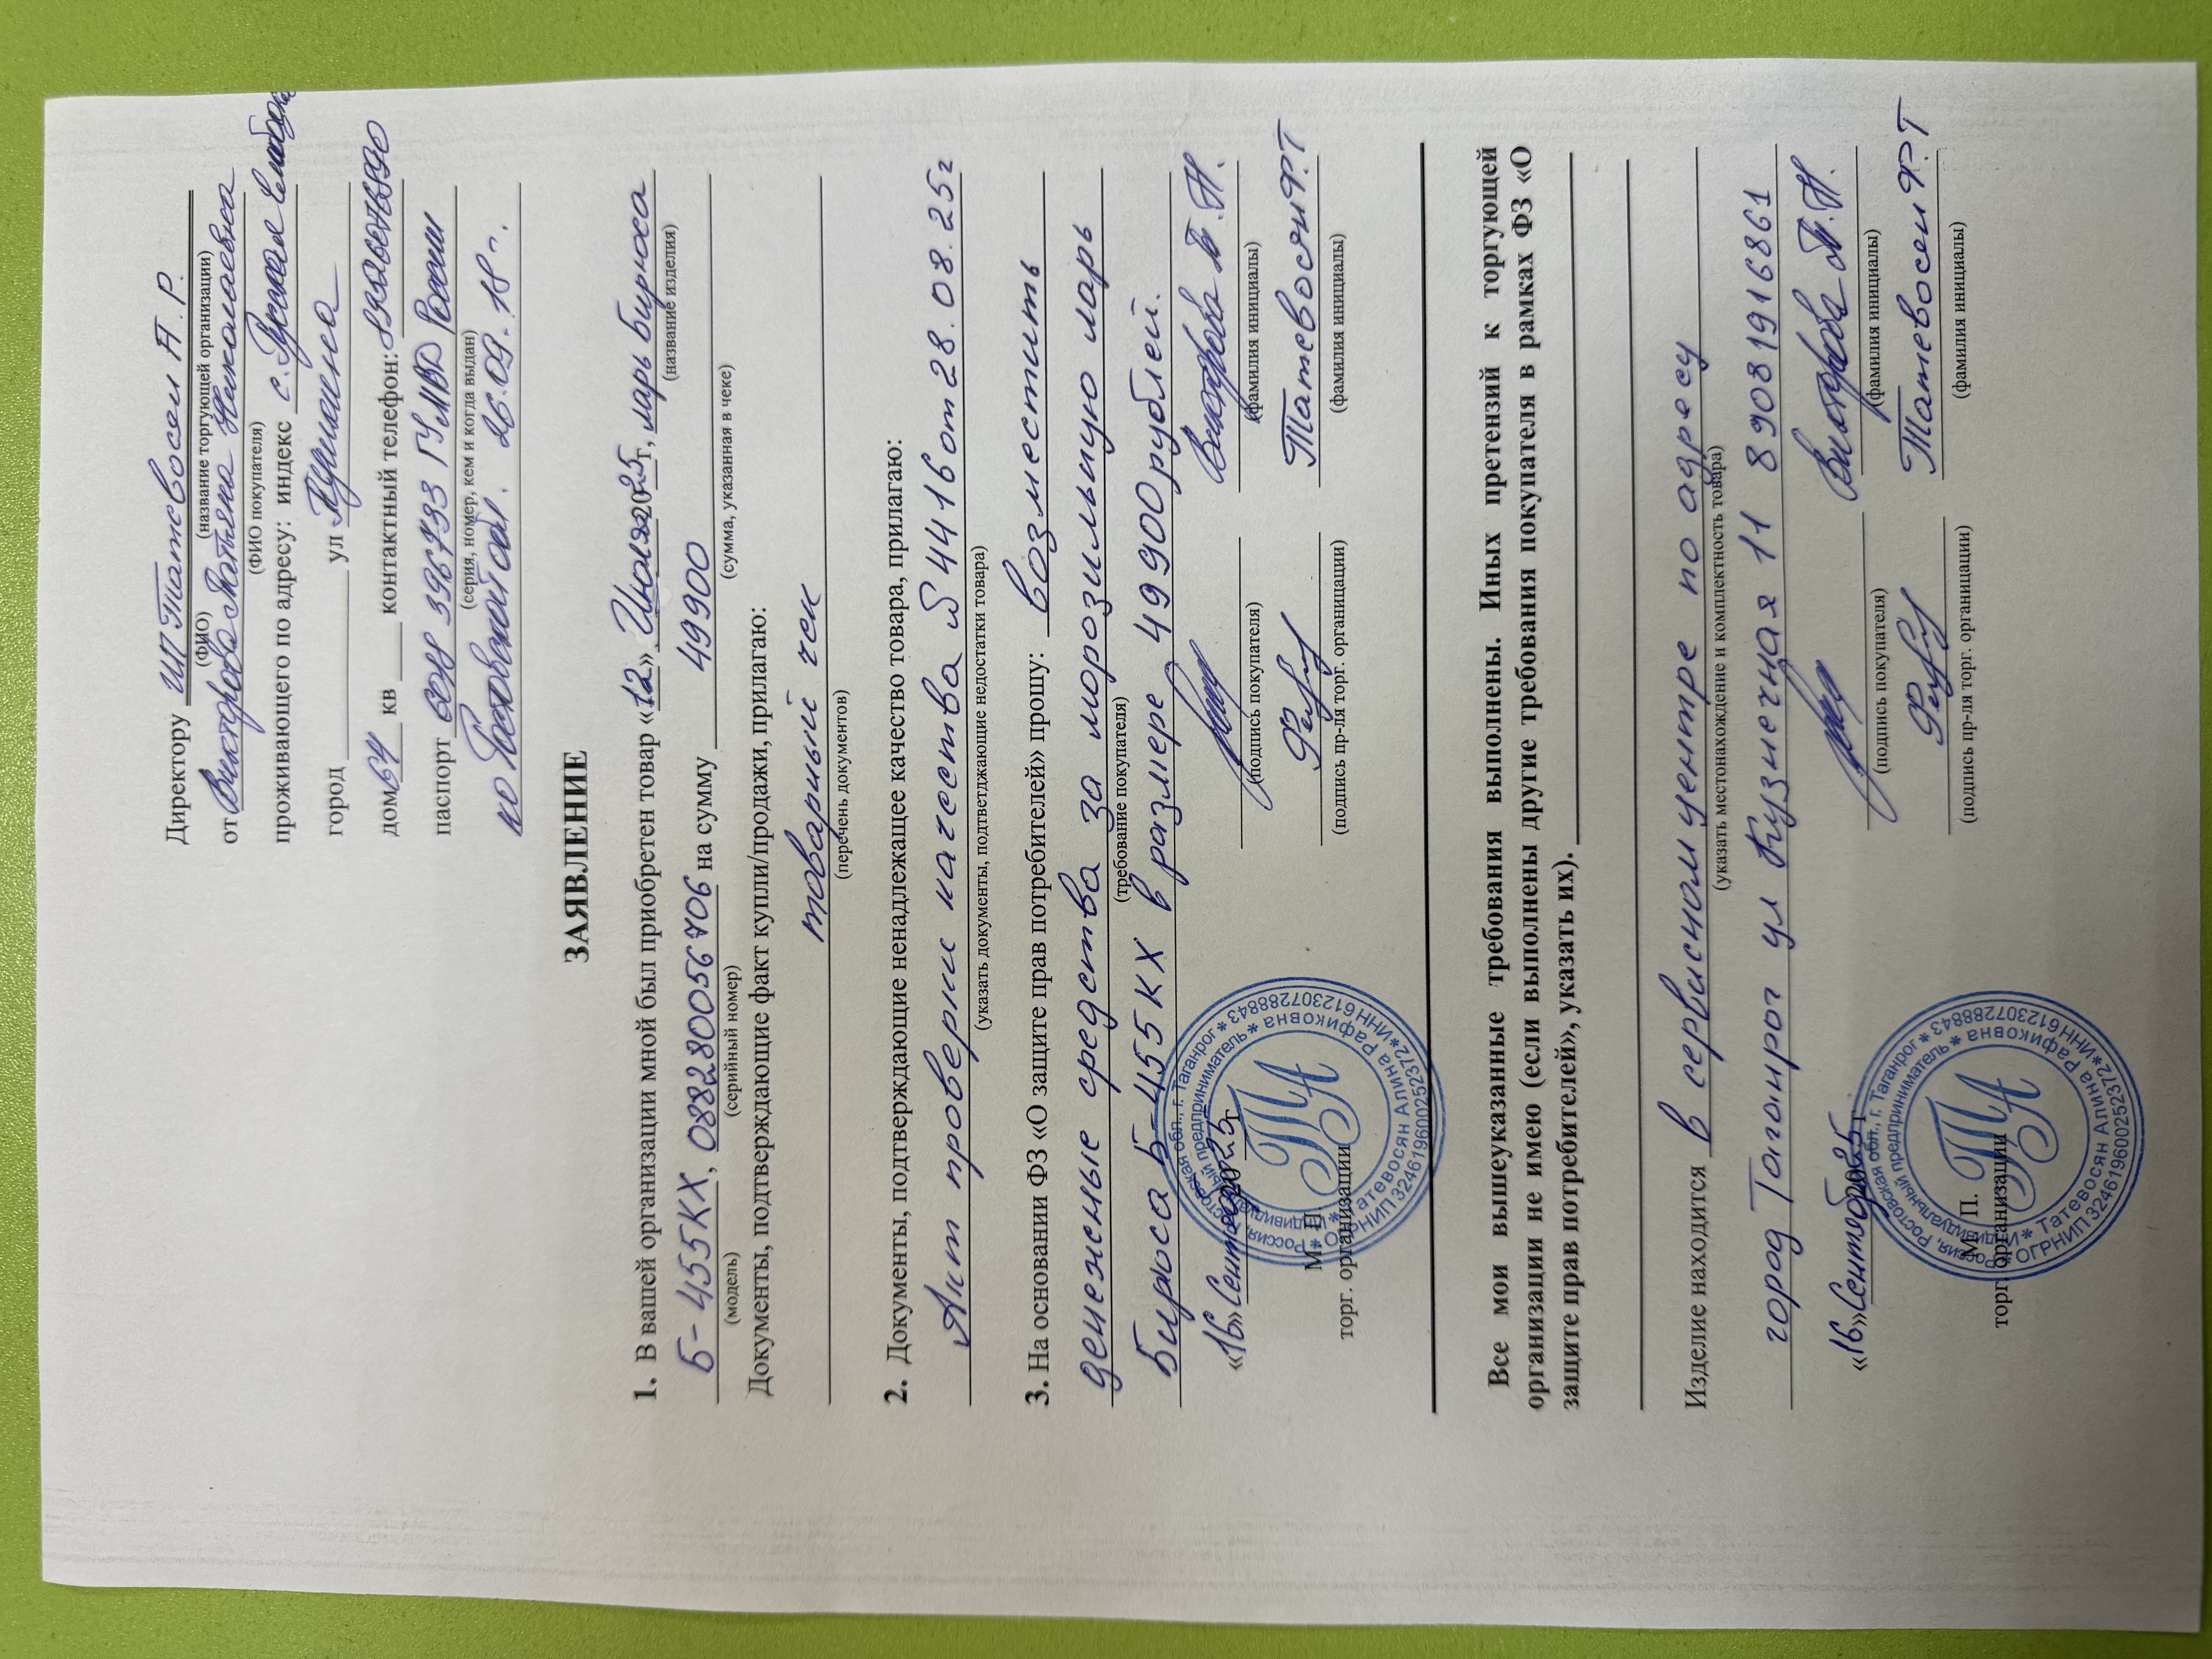 Директору ИП Татевосян А. Р.
(ФИО) (название торгующей организации)
от Викторова Татьяна Николаевна
(ФИО покупателя)
проживающего по адресу: индекс с.
город ул Пушкина
дом 64 кв контактный телефон:
паспорт ГУ МВД России
(серия, номер, кем и когда выдан)
по Ростовской обл. 26.09.18г.
ЗАЯВЛЕНИЕ
1. В вашей организации мной был приобретен товар «12» Июля 2025г, ларь Бирюса
(название изделия)
Б-455КХ, 08828005б706 на сумму 49900
(модель) (серийный номер) (сумма, указанная в чеке)
Документы, подтверждающие факт купли/продажи, прилагаю:
товарный чек
(перечень документов)
2. Документы, подтверждающие ненадлежащее качество товара, прилагаю:
Акт проверки качества 54416 от 28.08.25г
(указать документы, подтветджающие недостатки товара)
3. На основании ФЗ «О защите прав потребителей» прошу: возместить
денежные средства за морозильную ларь
(требование покупателя)
Бирюса Б-455КХ в размере 49900 рублей.
«16» Сентября 2025г Викторова Т.Н.
(подпись покупателя) (фамилия инициалы)
М. П. Татевосян Р.Т
торг. организации (подпись пр-ля торг. органицации) (фамилия инициалы)
Россия, Ростовская обл., г. Таганрог * ИНН 612307288843
* Индивидуальный предприниматель *
* Татевосян Алина Рафиковна *
ОГРНИП 324619600252372
ТА
Все мои вышеуказанные требования выполнены. Иных претензий к торгующей
организации не имею (если выполнены другие требования покупателя в рамках ФЗ «О
защите прав потребителей», указать их).
Изделие находится в сервисном центре по адресу
(указать местонахождение и комплектность товара)
город Таганрог ул Кузнечная 11 89081916861
«16» Сентября 2025г Викторова Т.Н.
(подпись покупателя) (фамилия инициалы)
М. П. Татевосян Р.Т
торг. организации (подпись пр-ля торг. органицации) (фамилия инициалы)
Россия, Ростовская обл., г. Таганрог * ИНН 612307288843
* Индивидуальный предприниматель *
* Татевосян Алина Рафиковна *
ОГРНИП 324619600252372
ТА